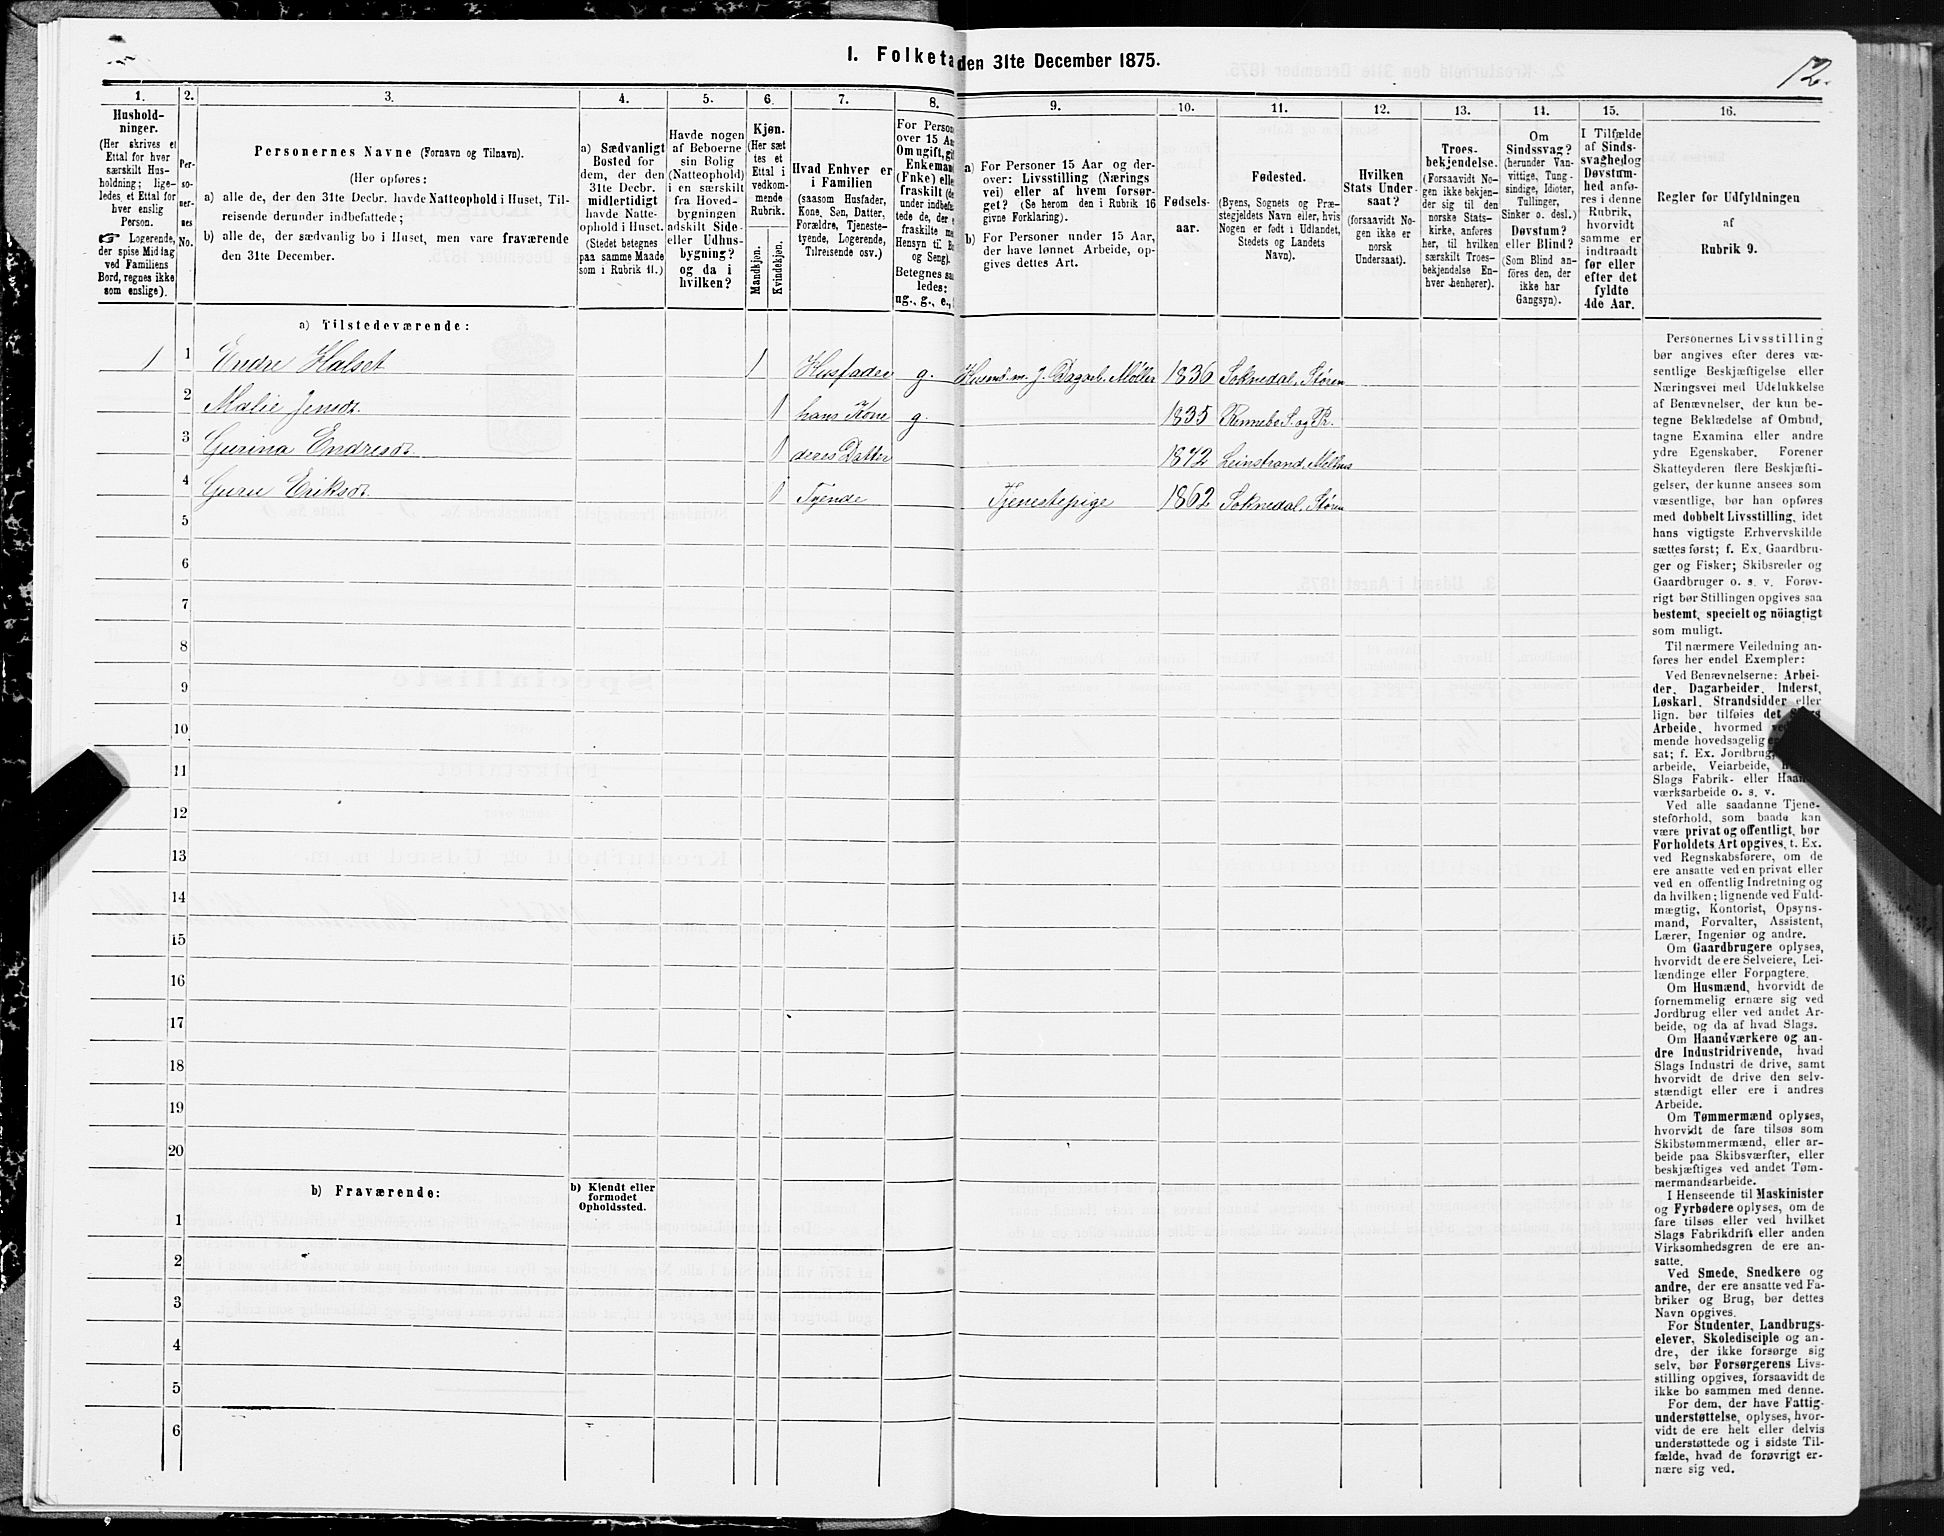 1. Folketa
den 31te December 1875.
12.
1. 2. 3. 4. 5. 6. 7. 8. 9. 10. 11. 12. 13. 14. 15. 16.
Hushold-
ninger.
(Her skrives et
Ettal for hver
særskilt Hus-
holdning; lige-
ledes et Ettal for
hver enslig
Person.
☞ Logerende,
der spise Middag
ved Familiens
Bord, regnes ikke
som enslige).
Per-
so-
ner-
nes
No.
Personernes Navne (Fornavn og Tilnavn).
(Her opføres:
a) alle de, der den 31te Decbr. havde Natteophold i Huset, Til-
reisende derunder indbefattede;
b) alle de, der sædvanlig bo i Huset, men vare fraværende
den 31te December.
a) Sædvanligt
Bosted for
dem, der den
31te Decbr.
midlertidigt
havde Natte-
ophold i Huset.
(Stedet betegnes
paa samme Maade
som i Rubrik 11.)
Havde nogen
af Beboerne
sin Bolig
(Natteophold)
i en særskilt
fra Hoved-
bygningen
adskilt Side-
eller Udhus-
bygning?
og da i
hvilken?
Kjøn.
(Her sæt
tes et
Ettal i
vedkom-
mende
Rubrik.
Mandkjøn.
Kvindekjøn.
Hvad Enhver er
i Familien
(saasom Husfader,
Kone, Søn, Datter,
Forældre, Tjeneste-
tyende, Logerende,
Tilreisende osv.)
For Person
over 15 Aa
Om ugift, gi
Enkeman
(Fnke) elle
fraskilt (de
under indbefat
tede de, der e
fraskilte me
Hensyn til B
og Seng).
Betegnes saa
ledes:
ug., g., e.,
a) For Personer 15 Aar og der-
over: Livsstilling (Nærings
vei) eller af hvem forsør-
get? (Se herom den i Rubrik 16
givne Forklaring).
b) For Personer under 15 Aar,
der have lønnet Arbeide, op-
gives dettes Art.
Fødsels-
aar.
Fødested.
(Byens, Sognets og Præ-
stegjeldets Navn eller, hvis
Nogen er født i Udlandet,
Stedets og Landets
Navn).
Hvilken
Stats Under-
saat?
(forsaavidt No-
gen ikke er
norsk
Undersaat).
Troes-
bekjendelse.
(Forsaavidt No-
gen ikke bekjen-
der sig til den
norske Stats-
kirke, anføres
her, til hvilken
særskilt Troes-
bekjendelse En-
hver henhører).
Om
Sindssvag?
(herunder Van-
vittige, Tung-
sindige, Idioter,
Tullinger,
Sinker o. desl.)
Døvstum?
eller Blind?
(Som Blind an-
føres den, der
ikke har
Gangsyn).
I Tilfælde
af Sinds-
svaghed og
Døvstum-
hed anfø-
res i denne
Rubrik,
hvorvidt
samme er
indtraadt
før eller
efter det
fyldte
4de Aar.
Regler for Udfyldningen
af
Rubrik 9.
a) Tilstedeværende:
1 1 Endre Halset 1 Husfader g. Husmd. m. J. Dagarb. Møller 1836 Soknedal. Støren
2 Malie Jensdr. 1 hans Kone g. 1835 Rennebo S. og Pr.
3 Gurina Endresdr. 1 deres Datter 1872 Leinstrand, Melhus
4 Guru Eriksdr. 1 Tyende Tjenestepige 1862 Soknedal. Støren
5
6
7
8
9
10
11
12
13
14
15
16
17
18
19
20
b) Fraværende:
b) Kjendt eller
formodet
Opholdssted.
1
2
3
4
5
6
Personernes Livsstilling
bør angives efter deres væ-
sentlige Beskjæftigelse eller
Næringsvei med Udelukkelse
af Benævnelser, der kun be-
tegne Beklædelse af Ombud,
tagne Examina eller andre
ydre Egenskaber. Forener
Skatteyderen flere Beskjæfti-
gelser, der kunne ansees som
væsentlige, bør han opføres
med dobbelt Livsstilling, idet
hans vigtigste Erhvervskilde
sættes først; f. Ex. Gaardbru-
ger og Fisker; Skibsreder og
Gaardbruger o. s. v. Forøv-
rigt bør Stillingen opgives saa
bestemt, specielt og nöiagtigt
som muligt.
Til nærmere Veiledning an-
føres her endel Exempler:
Ved Benævnelserne: Arbei-
der, Dagarbeider, Inderst,
Løskarl, Strandsidder eller
lign. bør tilføies det
Arbeide, hvormed
mende hovedsagelig
sat; f. Ex. Jordbrug,
arbeide, Veiarbeide,
Slags Fabrik- eller Haan
værksarbeide o. s. v.
Ved alle saadanne Tjene-
steforhold, som baade kan
være privat og offentligt, bør
Forholdets Art opgives, t. Ex.
ved Regnskabsførere, om de
ere ansatte ved en privat eller
ved en offentlig Indretning og
da hvilken; lignende ved Fuld-
mægtig, Kontorist, Opsyns-
mand, Forvalter, Assistent,
Lærer, Ingeniør og andre.
Om Gaardbrugere oplyses,
hvorvidt de ere Selveiere, Lei-
lændinge eller Forpagtere.
Om Husmænd, hvorvidt de
fornemmelig ernære sig ved
Jordbrug eller ved andet Ar-
beide, og da af hvad Slags.
Om Haandværkere og an-
dre Industridrivende, hvad
Slags Industri de drive, samt
hvorvidt de drive den selv-
stændigt eller ere i andres
Arbeide.
Om Tømmermænd oplyses,
hvorvidt de fare tilsøs som
Skibstømmermænd, eller ar-
beide paa Skibsværfter, eller
beskjæftiges ved andet Tøm-
mermandsarbeide.
I Henseende til Maskinister
og Fyrbødere oplyses, om de
fare tilsøs eller ved hvilket
Slags Fabrikdrift eller anden
Virksomhedsgren de ere an-
satte.
Ved Smede, Snedkere og
andre, der ere ansatte ved Fa-
briker og Brug, bør dettes
Navn opgives.
For Studenter, Landbrugs-
elever, Skoledisciple og an-
dre, der ikke forsørge sig
selv, bør Forsørgerens Livs-
stilling opgives, forsaavidt de
ikke bo sammen med denne.
For dem, der have Fattig-
understøttelse, oplyses, hvor-
vidt de ere helt eller delvis
understøttede og i sidste Til-
fælde, hvad de forøvrigt er-
nære sig ved.